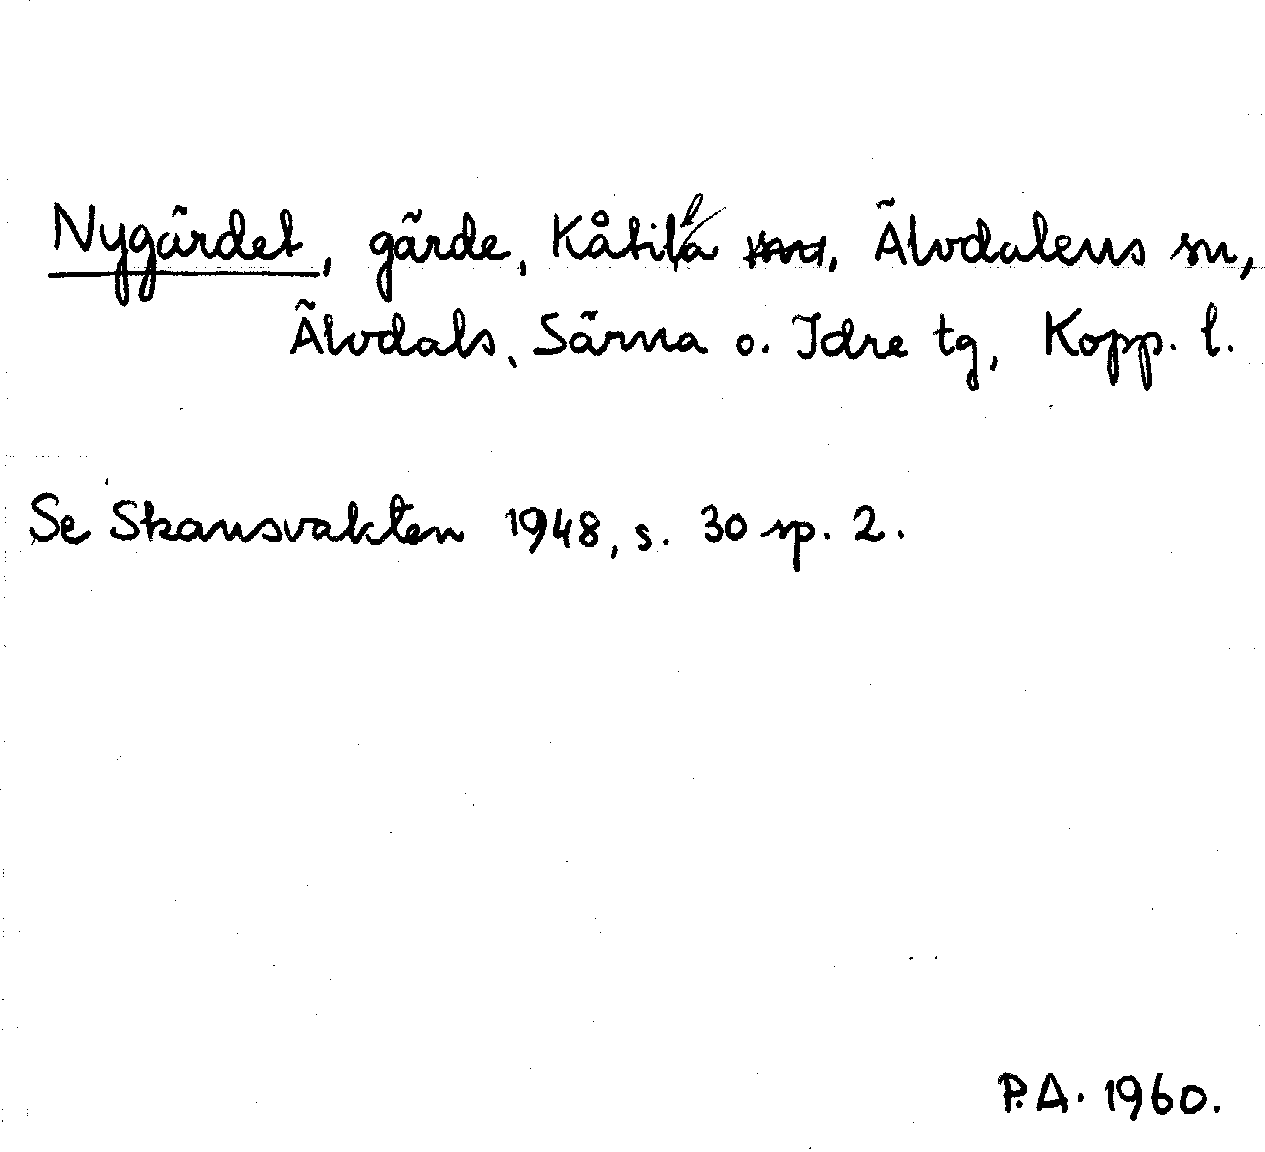 Nygärdet, gärde, Kåtilla, Älvdalens sn,
Älvdals, Särna o. Idre tg, Kopp. l.
Se Skansvakten 1948, s. 30 sp. 2.
P.A. 1960.